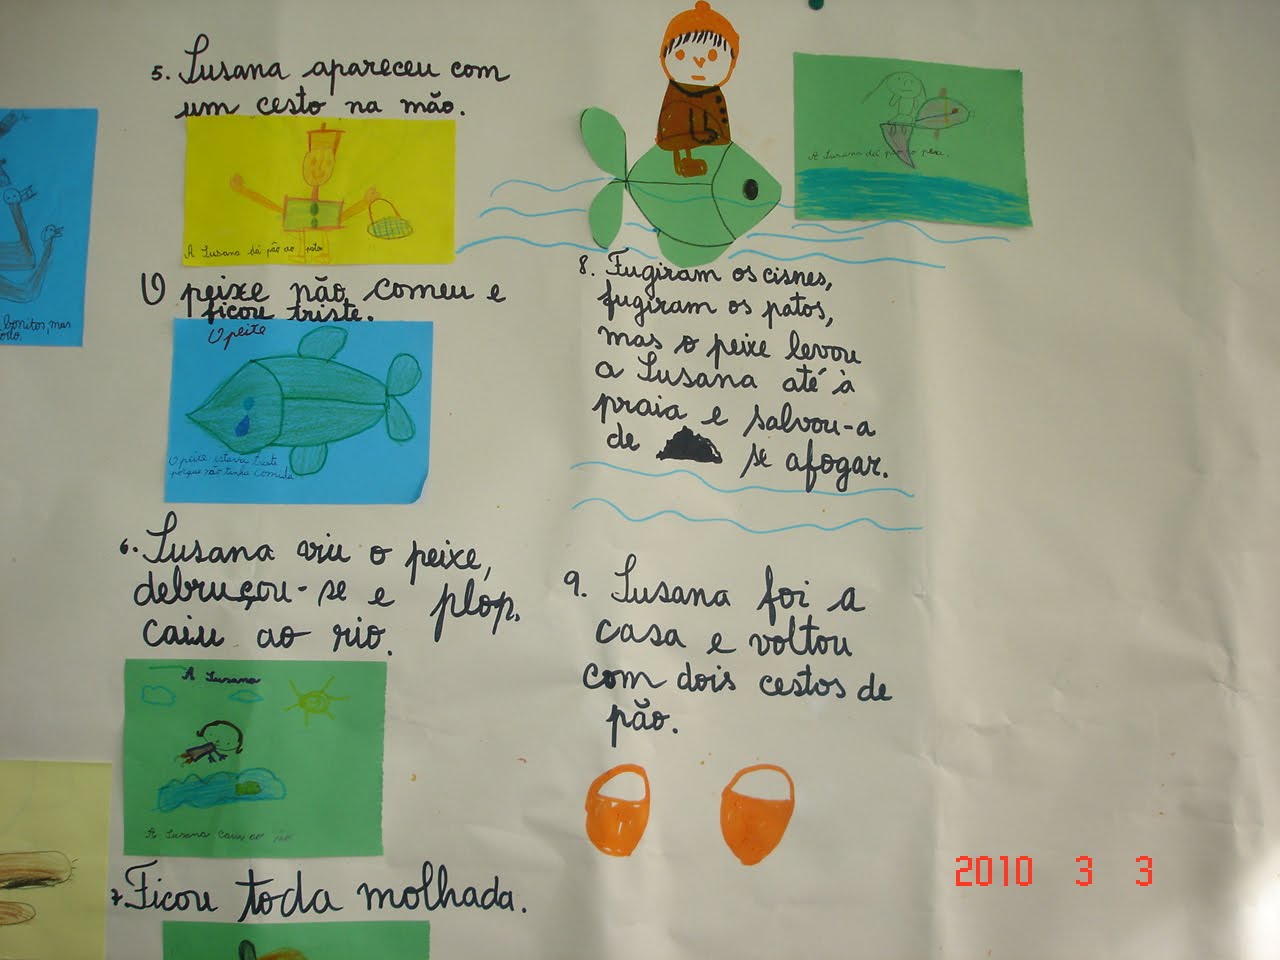 5. Susana apareceu com
um cesto na mão.
A Susana dá pão ao pato
O peixe não comeu e
ficou triste.
O peixe
O peixe estava triste
porque não tinha comida
6. Susana viu o peixe,
debruçou-se e plop.
caiu ao rio.
A Susana
A Susana caiu ao rio
7. Ficou toda molhada.
bonitos, mas
A Susana dá pão ao peixe.
8. Fugiram os cisnes,
fugiram os patos,
mas o peixe levou
a Susana até à
praia e salvou-a
de se afogar.
9. Susana foi a
casa e voltou
com dois cestos de
pão.
2010 3 3